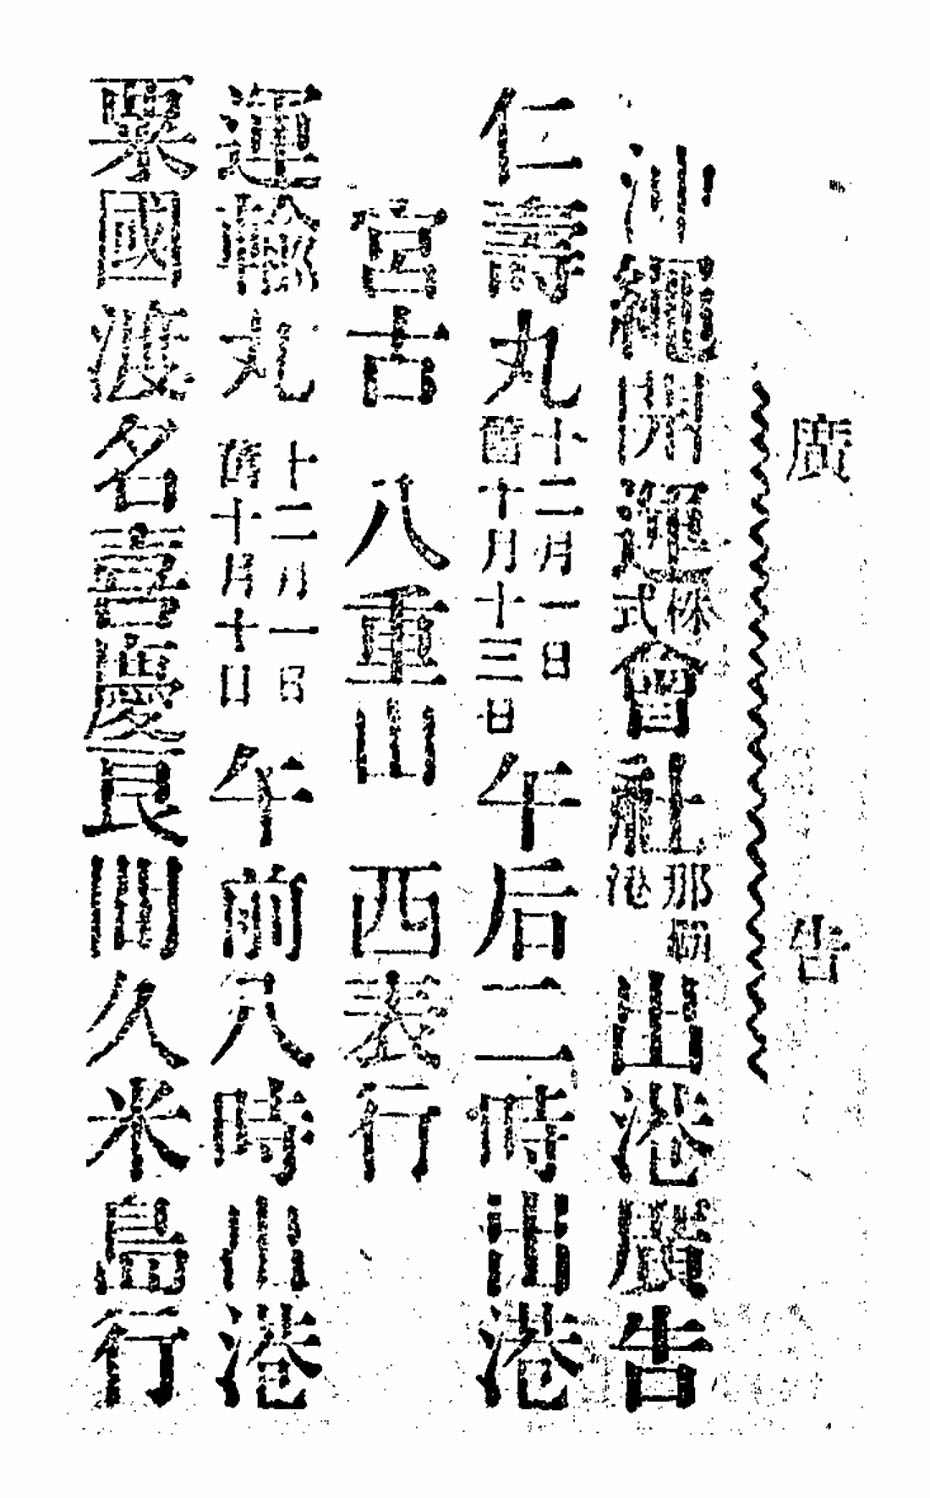 廣告
沖縄開運株式會社那覇港出港廣告
仁壽丸十二月一日舊十月十三日午后二時出港
宮古 八重山 西表行
運輸丸十二月一日舊十月十日午前八時出港
粟國渡名喜慶良間久米島行